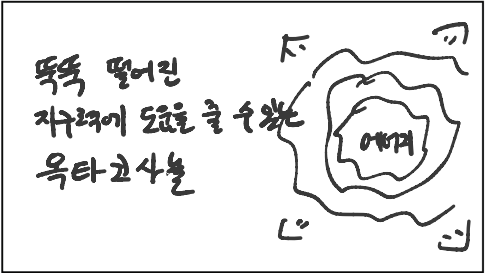 뚝뚝 떨어진
지구력에 도움을 줄 수 있는
옥타코사놀
에너지